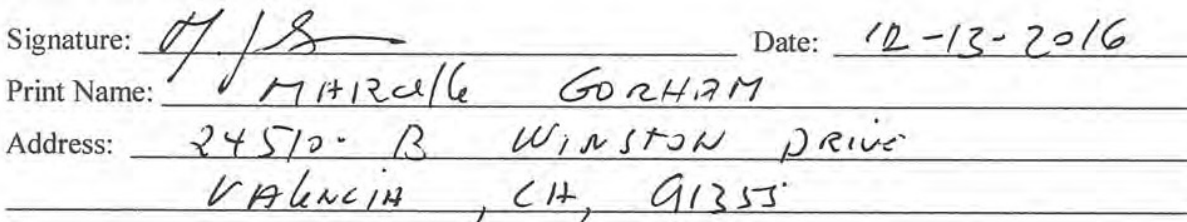 Signature: Date: 12-13-2016
Print Name: MARCelle GORHAM
Address: 24510- B WINSTON DRIVE
VALENCIA, CA, 91355